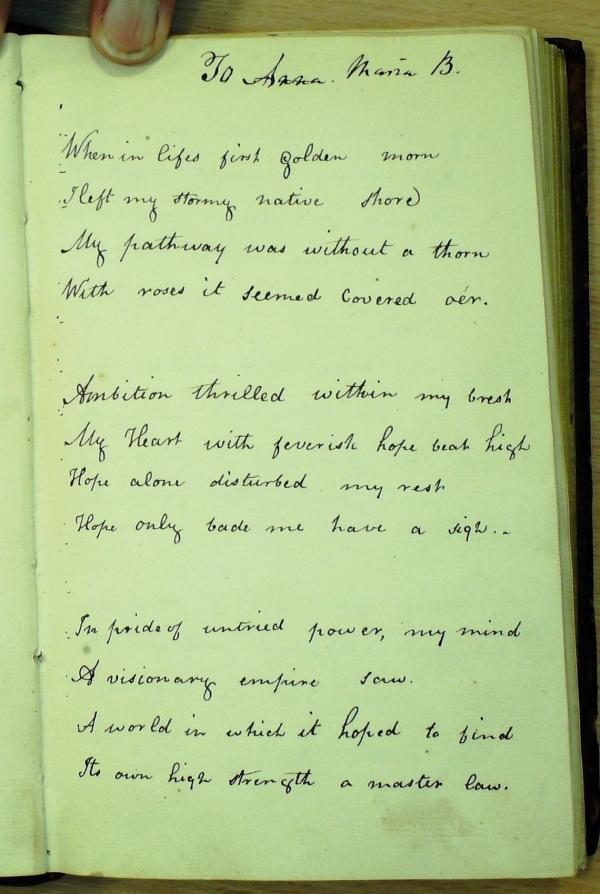 To Anna. Maria B.
When in lifes first golden morn
I left my stormy native shore
My pathway was without a thorn
With roses it seemed Covered oér.
Ambition thrilled within my brest
My Heart with feverish hope beat high
Hope alone disturbed my rest
Hope only bade me have a sigh..
In pride of untried power, my mind
A visionary empire saw.
A world in which it hoped to find
Its own high strength a master law.